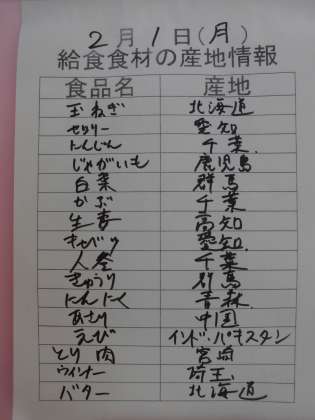 2月1日(月)
給食食材の産地情報
食品名 産地
玉ねぎ 北海道
セロリー 愛知
にんじん 千葉
じゃがいも 鹿児島
白菜 群馬
かぶ 千葉
生姜 高知
キャベツ 愛知
人参 千葉
きゅうり 群馬
にんにく 青森
あさり 中国
えび インド・パキスタン
とり肉 宮崎
ウインナー 埼玉
バター 北海道